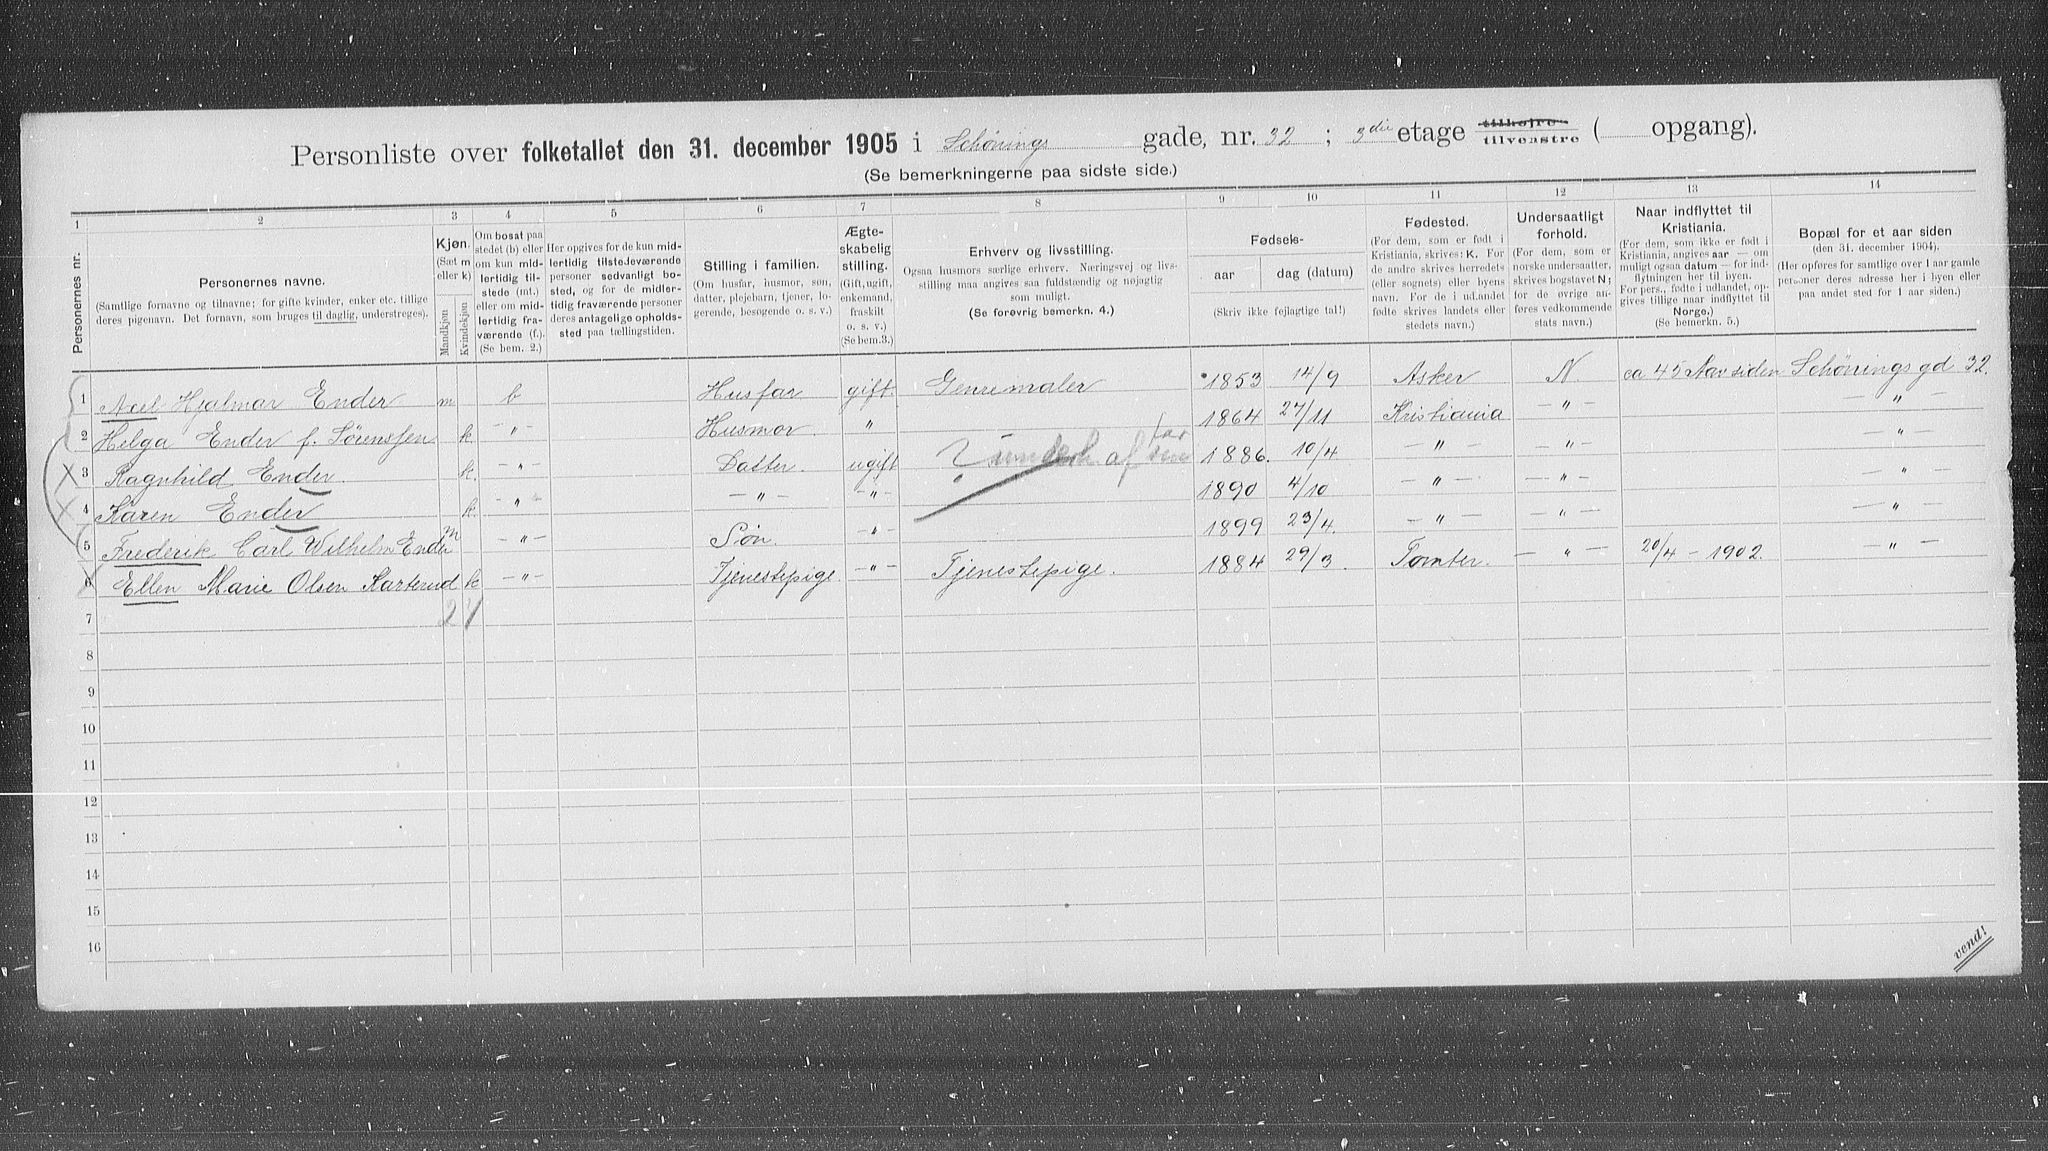 Personliste over folketallet den 31. december 1905 i Schönings gade, nr. 32 ; 3die etage tilhøjre tilvenstre ( opgang).
(Se bemerkningerne paa sidste side.)
1 2 3 4 5 6 7 8 9 10 11 12 13 14
Personernes nr.
Personernes navne.
(Samtlige fornavne og tilnavne; for gifte kvinder, enker etc. tillige
deres pigenavn. Det fornavn, som bruges til daglig, understreges).
Kjøn.
(Sæt m
eller k)
Mandkjøn
Kvindekjøn
Om bosat paa
stedet (b) eller
om kun mid-
lertidig til-
stede (mt.)
eller om mid-
lertidig fra-
værende (f.).
(Se bem. 2.)
Her opgives for de kun mid-
lertidig tilstedeværende
personer sedvanligt bo-
sted, og for de midler-
tidig fraværende personer
deres antagelige opholds-
sted paa tællingstiden.
Stilling i familien.
(Om husfar, husmor, søn,
datter, plejebarn, tjener, lo-
gerende, besøgende o. s. v.)
Ægte-
skabelig
stilling.
(Gift, ugift,
enkemand,
fraskilt
o. s. v.)
(Se bem.3.)
Erhverv og livsstilling.
Ogsaa husmors særlige erhverv. Næringsvej og livs-
stilling maa angives saa fuldstændig og nøjagtig
som muligt.
(Se forøvrig bemerkn. 4.)
Fødsels-
aar dag (datum)
(Skriv ikke fejlagtige tal!)
Fødested.
(For dem, som er født i
Kristiania, skrives: K. For
de andre skrives herredets
(eller sognets) eller byens
navn. For de i udlandet
fødte skrives landets eller
stedets navn.)
Undersaatligt
forhold.
(For dem, som er
norske undersaatter,
skrives bogstavet N;
for de øvrige an-
føres vedkommende
stats navn.)
Naar indflyttet til
Kristiania.
(For dem, som ikke er født i
Kristiania, angives aar — om
muligt ogsaa datum — for ind-
flytningen her til byen.
For pers., fødte i udlandet, op-
gives tillige naar indflyttet til
Norge.)
(Se bemerkn. 5.)
Bopæl for et aar siden
(den 31. december 1904).
(Her opføres for samtlige over 1 aar gamle
personer deres adresse her i byen eller
paa andet sted for 1 aar siden.)
1 Axel Hjalmar Ender m b Husfar gift. Genremaler 1853 14/9 Asker N. ca 45 Aar siden Schönings gd 32.
2 Helga Ender f. Sørenssen k - " - Husmor " 1864 27/11 Kristiania - " - - " -
3 Ragnhild Ender. k. - " - Datter. ugift underh. af far 1886. 10/4 - " - - " - - " -
4 Karen Ender k - " - - " - - " - 1890 4/10 - " - - " - - " -
5 Frederik Carl Wilhelm Ender m - " - Søn - " - 1899 23/4. - " - - " - - " -
6 Ellen Marie Olsen Karterud k - " - Tjenestepige. - " - Tjenestepige. 1884 29/3. Tomter. - " - 20/4 - 1902. - " -
7
8
9
10
11
12
13
14
15
16
vend!